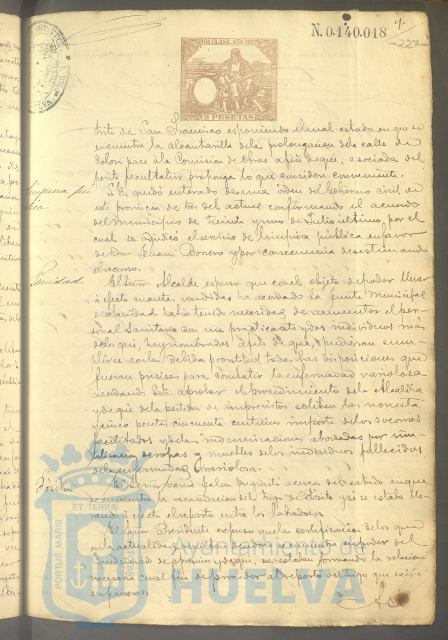 N. 0.140.018
227
10ª CLASE. AÑO 1887
2 PESETAS
trito de San Francisco esponiendo el mal estado en que se
encuentra la alcantarilla de la prolongacion de la calle de
Colon para la Comision de Obras a fin de que, asociada del
perito facultativo proponga lo que considere conveniente.
Limpieza pública
S.E. quedó enterado de una orden del Gobierno civil de
esta provincia de del actual confirmando el acuerdo
del municipio de treinta y uno de Julio último, por el
cual se adjudicó el servicio de limpieza pública en favor
de Don Donoro y por consecuencia desestimando
el recurso.
Sanidad
El Señor Alcalde espuso que con el objeto de poder llevar
á efecto cuantas medidas ha acordado la Junta municipal
de Sanidad habia tenido necesidad de aumentar el per-
sonal Sanitario con un practicante y dos individuos mas
de los que hay nombrados a fin de que pudieran cum-
plirse con la debida prontitud todas las disposiciones que
fueran precisas para combatir la enfermedad variolosa
acordando S.E. aprobar el procedimiento de la Alcaldia
y de que de la partida de imprevistos se libren las noventa
y cinco pesetas cincuenta centimos importe de los socorros
facilitados y de las indemnizaciones abonadas por inu-
tilizacion de ropas y muebles de los individuos fallecidos
de la enfermedad variolosa.
Pósitos
El Señor Garcia preguntó acerca del estado en que
se encuentra la recaudacion del trigo de Pósito y si se estaba lle-
vando á efecto el reparto entre los labradores.
El Señor Presidente espuso que la certificacion de los que
en la actualidad resultan deudores se encuentra en poder del
Comisionado de apremio y de que se estaba formando la relacion
necesaria con el fin de proceder al reparto del trigo que existe
en paneras.
PORTUS MARIS
ET TERRAE
Ayuntamiento de
HUELVA